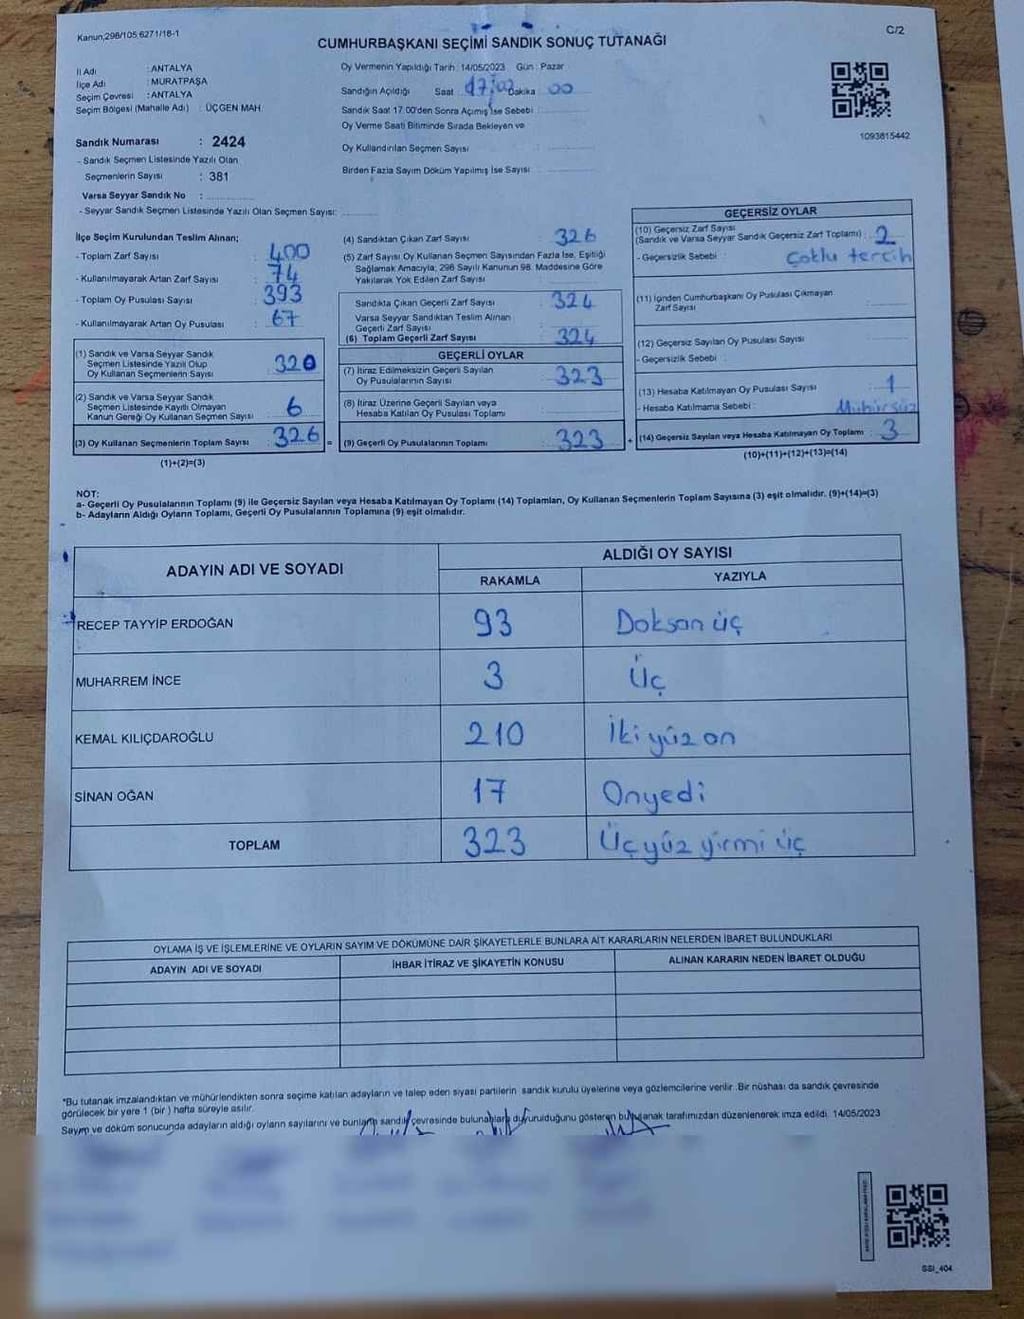 Kanun,298/105 6271/18-1
C/2
CUMHURBAŞKANI SEÇİMİ SANDIK SONUÇ TUTANAĞI
İl Adı : ANTALYA
İlçe Adı : MURATPAŞA
Seçim Çevresi : ANTALYA
Seçim Bölgesi (Mahalle Adı) : ÜÇGEN MAH.
Oy Vermenin Yapıldığı Tarih : 14/05/2023 Gün : Pazar
Sandığın Açıldığı Saat 17:00 Dakika 00
Sandık Saat 17.00'den Sonra Açımış İse Sebebi :
Oy Verme Saati Bitiminde Sırada Bekleyen ve
Oy Kullandırılan Seçmen Sayısı
Birden Fazla Sayım Döküm Yapılmış İse Sayısı
1093815442
Sandık Numarası : 2424
- Sandık Seçmen Listesinde Yazılı Olan
Seçmenlerin Sayısı : 381
Varsa Seyyar Sandık No :
- Seyyar Sandık Seçmen Listesinde Yazılı Olan Seçmen Sayısı:
İlçe Seçim Kurulundan Teslim Alınan;
- Toplam Zarf Sayısı : 400
- Kullanılmayarak Artan Zarf Sayısı : 74
- Toplam Oy Pusulası Sayısı : 393
- Kullanılmayarak Artan Oy Pusulası : 67
(1) Sandık ve Varsa Seyyar Sandık
Seçmen Listesinde Yazılı Olup
Oy Kullanan Seçmenlerin Sayısı : 320
(2) Sandık ve Varsa Seyyar Sandık
Seçmen Listesinde Kayıtlı Olmayan
Kanun Gereği Oy Kullanan Seçmen Sayısı : 6
(3) Oy Kullanan Seçmenlerin Toplam Sayısı : 326 =
(1)+(2)=(3)
(4) Sandıktan Çıkan Zarf Sayısı : 326
(5) Zarf Sayısı Oy Kullanan Seçmen Sayısından Fazla İse, Eşitliği
Sağlamak Amacıyla; 298 Sayılı Kanunun 98. Maddesine Göre
Yakılarak Yok Edilen Zarf Sayısı
Sandıkta Çıkan Geçerli Zarf Sayısı : 324
Varsa Seyyar Sandıktan Teslim Alınan
Geçerli Zarf Sayısı
(6) Toplam Geçerli Zarf Sayısı : 324
GEÇERLİ OYLAR
(7) İtiraz Edilmeksizin Geçerli Sayılan
Oy Pusulalarının Sayısı : 323
(8) İtiraz Üzerine Geçerli Sayılan veya
Hesaba Katılan Oy Pusulası Toplamı
(9) Geçerli Oy Pusulalarının Toplamı : 323 +
GEÇERSİZ OYLAR
(10) Geçersiz Zarf Sayısı
(Sandık ve Varsa Seyyar Sandık Geçersiz Zarf Toplamı) : 2
- Geçersizlik Sebebi : Çoklu tercih
(11) İçinden Cumhurbaşkanı Oy Pusulası Çıkmayan
Zarf Sayısı
(12) Geçersiz Sayılan Oy Pusulası Sayısı
- Geçersizlik Sebebi
(13) Hesaba Katılmayan Oy Pusulası Sayısı : 1
- Hesaba Katılmama Sebebi : Mühürsüz
(14) Geçersiz Sayılan veya Hesaba Katılmayan Oy Toplamı : 3
(10)+(11)+(12)+(13)=(14)
NOT:
a- Geçerli Oy Pusulalarının Toplamı (9) ile Geçersiz Sayılan veya Hesaba Katılmayan Oy Toplamı (14) Toplamları, Oy Kullanan Seçmenlerin Toplam Sayısına (3) eşit olmalıdır. (9)+(14)=(3)
b- Adayların Aldığı Oyların Toplamı, Geçerli Oy Pusulalarının Toplamına (9) eşit olmalıdır.
ADAYIN ADI VE SOYADI
ALDIĞI OY SAYISI
RAKAMLA YAZIYLA
RECEP TAYYİP ERDOĞAN 93 Doksan üç
MUHARREM İNCE 3 Üç
KEMAL KILIÇDAROĞLU 210 İki yüz on
SİNAN OĞAN 17 Onyedi
TOPLAM 323 Üç yüz yirmi üç
OYLAMA İŞ VE İŞLEMLERİNE VE OYLARIN SAYIM VE DÖKÜMÜNE DAİR ŞİKAYETLERLE BUNLARA AİT KARARLARIN NELERDEN İBARET BULUNDUKLARI
ADAYIN ADI VE SOYADI İHBAR İTİRAZ VE ŞİKAYETİN KONUSU ALINAN KARARIN NEDEN İBARET OLDUĞU
*Bu tutanak imzalandıktan ve mühürlendikten sonra seçime katılan adayların ve talep eden siyasi partilerin sandık kurulu üyelerine veya gözlemcilerine verilir .Bir nüshası da sandık çevresinde
görülecek bir yere 1 (bir ) hafta süreyle asılır.
Sayım ve döküm sonucunda adayların aldığı oyların sayılarını ve bunların sandık çevresinde bulunanlara duyurulduğunu gösteren bu tutanak tarafımızdan düzenlenerek imza edildi. 14/05/2023
SSI_404